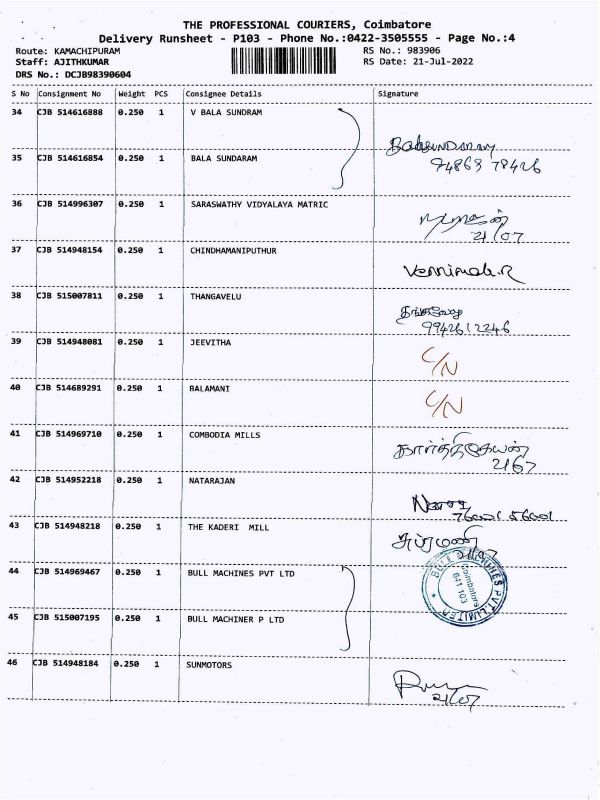 THE PROFESSIONAL COURIERS, Coimbatore
Delivery Runsheet - P103 - Phone No.:0422-3505555 - Page No.:4
Route: KAMACHIPURAM RS No.: 983906
Staff: AJITHKUMAR RS Date: 21-Jul-2022
DRS No.: DCJB98390604
S No Consignment No Weight PCS Consignee Details Signature
34 CJB 514616888 0.250 1 V BALA SUNDRAM
BalaSUNDARAM
35 CJB 514616854 0.250 1 BALA SUNDARAM 94863 78426
36 CJB 514996307 0.250 1 SARASWATHY VIDYALAYA MATRIC
21/07
37 CJB 514948154 0.250 1 CHINDHAMANIPUTHUR
Vennimalr.R
38 CJB 515007811 0.250 1 THANGAVELU
தங்கவேல்
9942612246
39 CJB 514948081 0.250 1 JEEVITHA
C/N
40 CJB 514689291 0.250 1 BALAMANI
C/N
41 CJB 514969710 0.250 1 COMBODIA MILLS
கார்த்திகேயன்
21/07
42 CJB 514952218 0.250 1 NATARAJAN
43 CJB 514948218 0.250 1 THE KADERI MILL
சுப்ரமணி
21/07
44 CJB 514969467 0.250 1 BULL MACHINES PVT LTD
BULL MACHINES PVT. LIMITED
Coimbatore
641 103
45 CJB 515007195 0.250 1 BULL MACHINER P LTD
46 CJB 514948184 0.250 1 SUNMOTORS
21/07